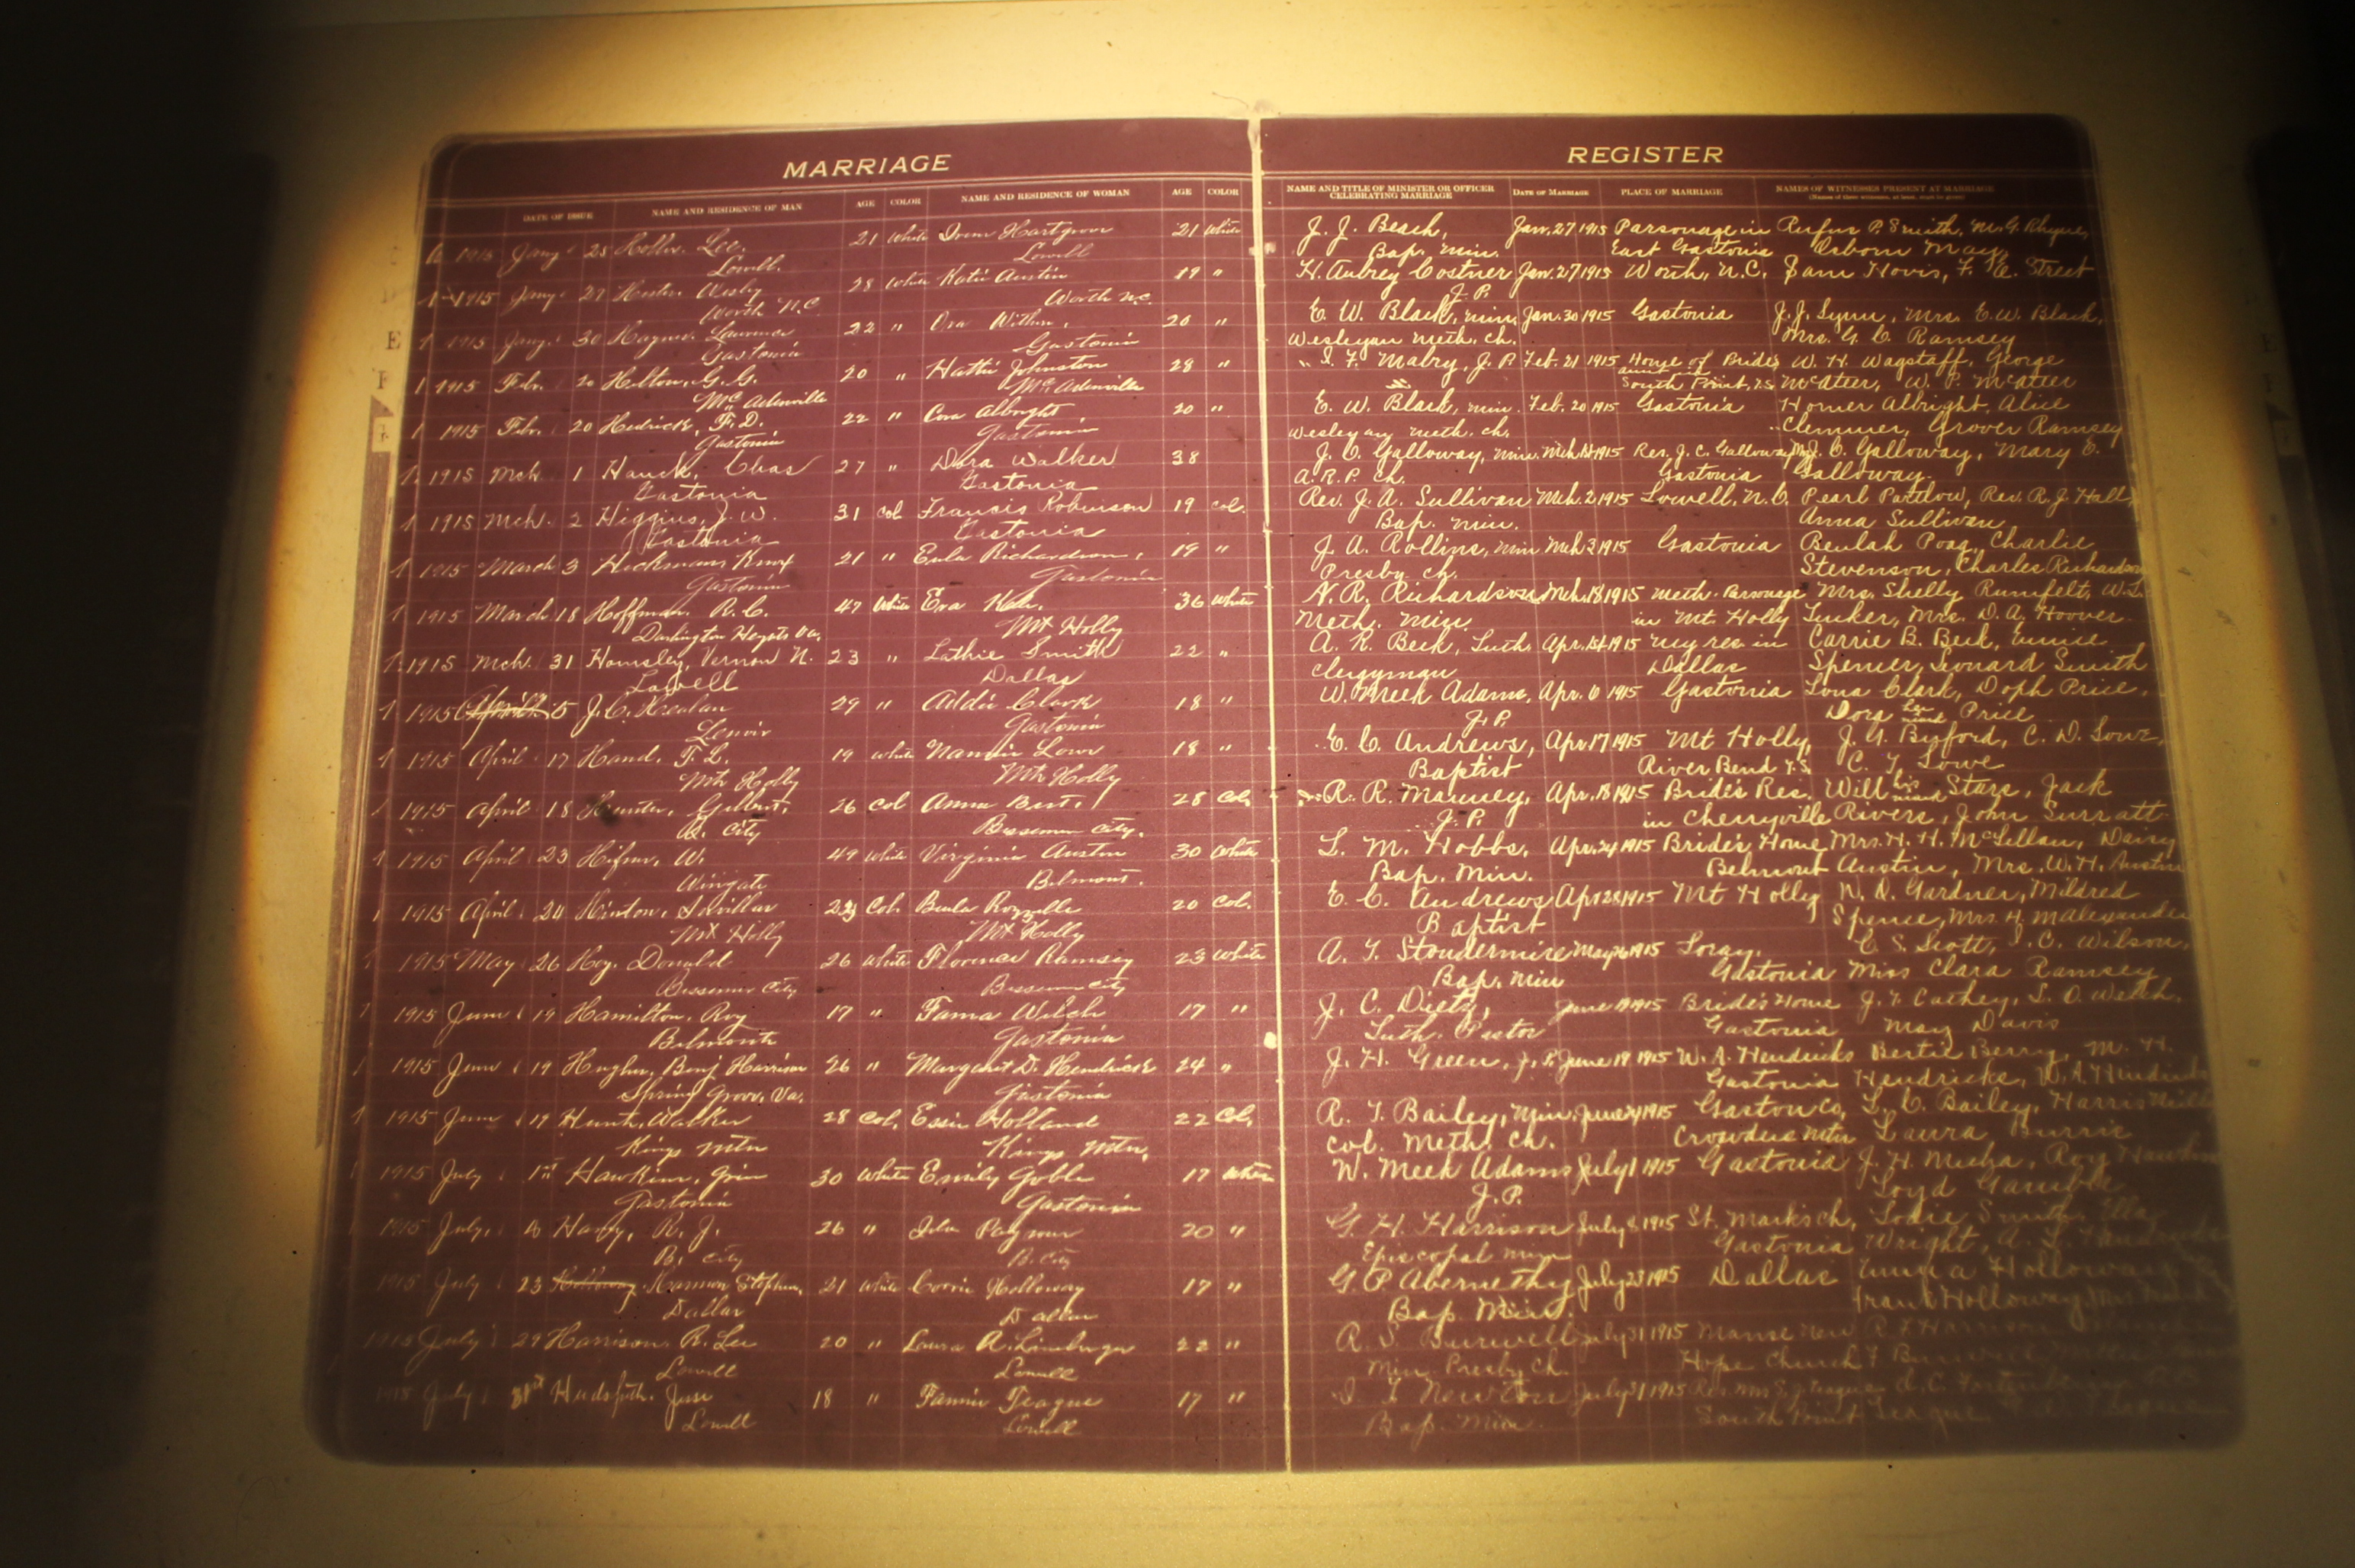 MARRIAGE
REGISTER
DATE OF ISSUE NAME AND RESIDENCE OF MAN AGE COLOR NAME AND RESIDENCE OF WOMAN AGE COLOR
NAME AND TITLE OF MINISTER OR OFFICER CELEBRATING MARRIAGE DATE OF MARRIAGE PLACE OF MARRIAGE NAMES OF WITNESSES PRESENT AT MARRIAGE
1915 Jany 25 Lee. 21 White Hartgrove 21 White J. J. Beach, Jan. 27 1915 Parsonage in Rufus P. Smith, M. G. Rhyne,
Lowell. Lowell Bap. min. East Gastonia Osborn May
1915 Jany 27 Wesley 28 White Katie Austin 19 " H. Aubrey Costner Jan. 27 1915 Worth, N.C. Sam Hovis, F. E. Street
Worth N.C. Worth N.C. J. P.
1915 Jany. 30 Lawrence 22 " Ora 20 " E. W. Black, min. Jan. 30 1915 Gastonia J. J. Lynn, Mrs. E. W. Black,
Gastonia Gastonia Wesleyan Meth. Ch. Mrs. G. C. Ramsey
1915 Feb. 20 Helton, G. G. 20 " Hattie Johnston 28 " Mabry, J. P. Feb. 21 1915 House of Brides W. H. Wagstaff, George
McAdenville McAdenville South Point, McAtter, W. P. McAtter
1915 Feb. 20 Hedrick, F. D. 22 " Cora Albright 20 " E. W. Black, min. Feb. 20 1915 Gastonia Homer Albright, Alice
Gastonia Gastonia Wesleyan Meth. Ch. Clemmer, Grover Ramsey
1915 Mch 1 Hauck, Chas 27 " Dora Walker 38 J. C. Galloway, Min. Mch. 1st 1915 Res. J. C. Galloway J. C. Galloway, Mary E.
Gastonia Gastonia A. R. P. Ch. Gastonia Galloway.
1915 Mch. 2 Higgins, J. W. 31 col Francis Robinson 19 col. Rev. J. A. Sullivan Mch. 2 1915 Lowell, N. C. Pearl Partlow, Rev. R. J. Hall,
Gastonia Gastonia Bap. Min. Anna Sullivan
1915 March 3 Hickman, Knox 21 " Eula Richardson, 19 " J. A. Rollins, Min Mch 3 1915 Gastonia Beulah Poag, Charlie
Gastonia Gastonia Presby. Ch. Stevenson, Charles Richardson
1915 March 18 Hoffman, R. C. 47 White Eva 36 White N. R. Richardson Mch. 18 1915 Meth. Parsonage Mrs. Shelly Rumfelt, W. L.
Darlington Heights Va. Mt Holly Meth. Min. in Mt Holly Tucker, Mrs. D. A. Hoover
1915 Mch. 31 Hamsley, Vernon N. 23 " Lathie Smith 22 " A. R. Beck, Luth. Apr. 1st 1915 my res. in Carrie B. Beck, Eunice
Lowell Dallas Clergyman Dallas Spencer, Leonard Smith
1915 5 J. C. 29 " Addie Clark 18 " W. Meek Adams, Apr. 6 1915 Gastonia Lona Clark, Doph Price,
Lenoir Gastonia J. P. Dora her mark Price
1915 April 17 Hand, F. L. 19 White Nannie Lowe 18 " E. C. Andrews, Apr. 17 1915 Mt Holly, J. A. Buford, C. D. Lowe,
Mt Holly Mt Holly Baptist River Bend T.S. C. T. Lowe
1915 April 18 Hunter, Gilbert, 26 Col Anna 28 Col. R. R. Mauney, Apr. 18 1915 Bride's Res. Will his mark Starr, Jack
B. City Bessemer City. J. P. in Cherryville Rivers, John Surratt
1915 April 23 W. 49 White Virginia Austin 30 White L. M. Hobbs, Apr. 24 1915 Bride's Home Mrs. H. H. McLellan, Daisy
Wingate Belmont. Bap. Min. Belmont Austin, Mrs. W. H. Austin
1915 April 24 Hinton, Col. Beula Rozzelle 20 Col. E. C. Andrews Apr 28 1915 Mt Holly N. D. Gardner, Mildred
Mt Holly Mt Holly Baptist Spence, Mrs. H. M Alexander
1915 May 26 Hoy, Donald 26 White Florence Ramsey 23 White A. T. Stoudermire May 26 1915 Loray, C. S. Scott, J. C. Wilson,
Bessemer City Bessemer City Bap. Min Gastonia Miss Clara Ramsey
1915 June 19 Hamilton, Roy 17 " Fama Welch 17 " J. C. Dietz, June 19 1915 Bride's Home J. T. Cathey, L. O. Welch,
Belmont Gastonia Luth. Pastor Gastonia May Davis
1915 June 19 Hughes, Benj Harrison 26 " Margaret D. Hendricks 24 " J. H. Green, J. P. June 19 1915 W. A. Hendricks Bertie Berry, M. H.
Spring Grove, Va. Gastonia Gastonia Hendricks, W. A. Hendricks
1915 June 19 Hunt, Walker 28 Col. Essie Holland 22 Col. R. T. Bailey, Min. June 1915 Gaston Co, L. C. Bailey, Harris
Kings Mtn Kings Mtn, Col. Meth. Ch. Crowders Mtn Laura Burris
1915 July 1st Hawkins, 30 White Emily Goble 17 White W. Meek Adams July 1 1915 Gastonia J. H. Roy Hawkins
Gastonia Gastonia J. P. Loyd
1915 July, R. J. 26 " Julia Paysour 20 " G. H. Harrison July 8, 1915 St. Marks Ch, Sadie Smith, Ella
B. City B. City Episcopal Min Gastonia Wright,
1915 July 23 Harmon, Stephen, 21 White Corrie Holloway 17 " G. P. Abernethy July 23 1915 Dallas Emma Holloway
Dallas Dallas Bap. Min. Frank Holloway
1915 July 29 Harrison, R. Lee 20 " Laura A. Lineberger 22 " R. S. Burwell July 31 1915 Manse New Harrison
Lowell Lowell Min. Presby. Ch. Hope Church
1915 July 31st Hudspeth, Jesse 18 " Fannie Teague 17 " Newton July 31 1915
Lowell Lowell Bap. Min. South Point